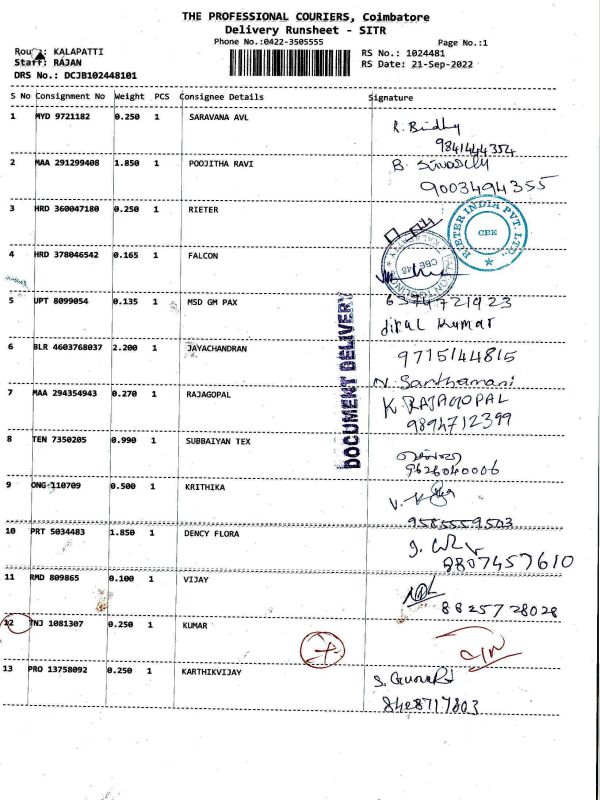 THE PROFESSIONAL COURIERS, Coimbatore
Delivery Runsheet - SITR
Phone No.:0422-3505555
Page No.:1
Route: KALAPATTI
RS No.: 1024481
Staff: RAJAN
RS Date: 21-Sep-2022
DRS No.: DCJB102448101
S No Consignment No Weight PCS Consignee Details Signature
1 MYD 9721182 0.250 1 SARAVANA AVL R. Bindhy
9841444354
2 MAA 291299408 1.850 1 POOJITHA RAVI B.
9003494355
3 HRD 360047180 0.250 1 RIETER
RIETER INDIA PVT. LTD.,
CBE
4 HRD 378046542 0.165 1 FALCON
CBE-48
5 UPT 8099054 0.135 1 MSD GM PAX 6374721923
Kumar
6 BLR 4603768037 2.200 1 JAYACHANDRAN 9715144815
N. Santhamani
7 MAA 294354943 0.270 1 RAJAGOPAL K. RAJAGOPAL
9894712399
8 TEN 7350205 0.990 1 SUBBAIYAN TEX
9626040006
9 ONG 110709 0.500 1 KRITHIKA
9585559503
10 PRT 5034483 1.850 1 DENCY FLORA
8807457610
11 RMD 809865 0.100 1 VIJAY
8825728028
12 TNJ 1081307 0.250 1 KUMAR
13 PRO 13758092 0.250 1 KARTHIKVIJAY S.
DOCUMENT DELIVERY